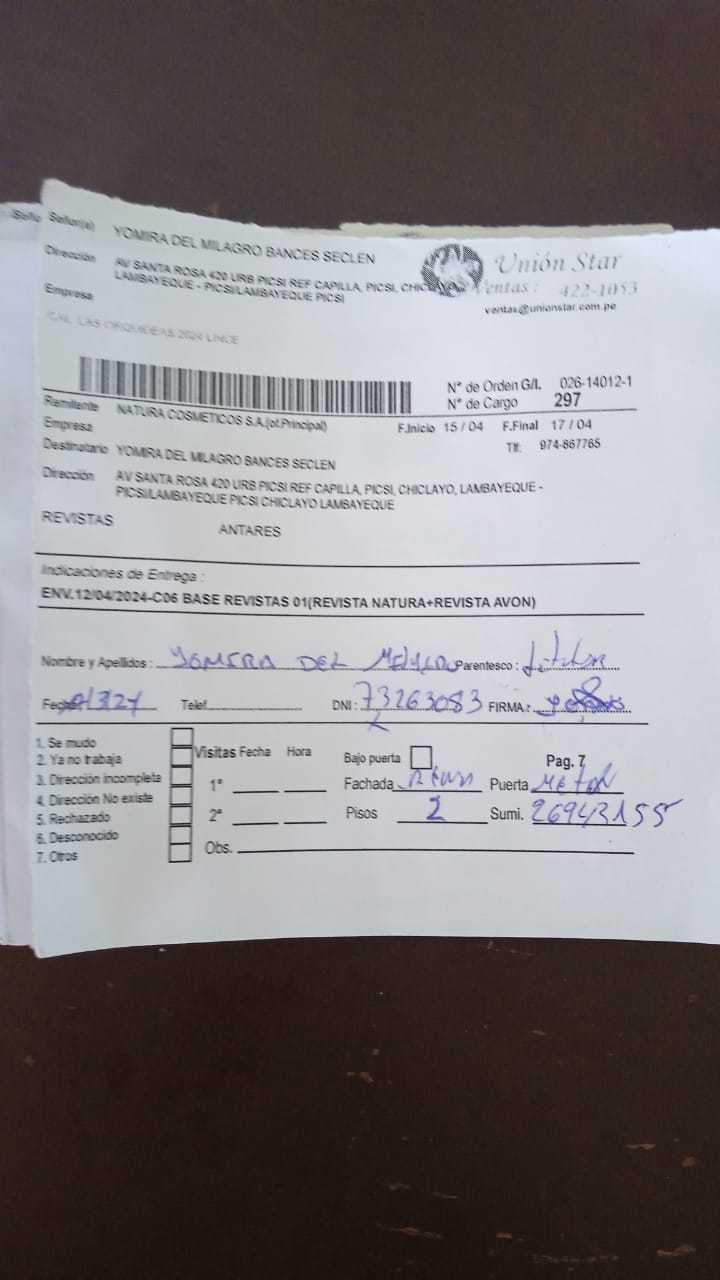 Señor(a) YOMIRA DEL MILAGRO BANCES SECLEN
Dirección AV SANTA ROSA 420 URB PICSI REF CAPILLA, PICSI, CHICLAYO,
LAMBAYEQUE - PICSI/LAMBAYEQUE PICSI
Empresa
Unión Star
Ventas : 422-1053
ventas@unionstar.com.pe
CAL LAS ORQUIDEAS 2024 LINCE
N° de Orden G/I. 026-14012-1
N° de Cargo 297
Remitente NATURA COSMETICOS S.A.(of.Principal)
Empresa F.Inicio 15 / 04 F.Final 17 / 04
Destinatario YOMIRA DEL MILAGRO BANCES SECLEN Tlf: 974-867765
Dirección AV SANTA ROSA 420 URB PICSI REF CAPILLA, PICSI, CHICLAYO, LAMBAYEQUE -
PICSI/LAMBAYEQUE PICSI CHICLAYO LAMBAYEQUE
REVISTAS ANTARES
Indicaciones de Entrega :
ENV.12/04/2024-C06 BASE REVISTAS 01(REVISTA NATURA+REVISTA AVON)
Nombre y Apellidos : YOMIRA DEL Parentesco :
Fecha Telef. DNI : 73263083 FIRMA :
1. Se mudo
2. Ya no trabaja
3. Dirección incompleta
4. Dirección No existe
5. Rechazado
6. Desconocido
7. Otros
Visitas Fecha Hora Bajo puerta Pag. 7
1° Fachada Puerta
2° Pisos 2 Sumi. 26943155
Obs.